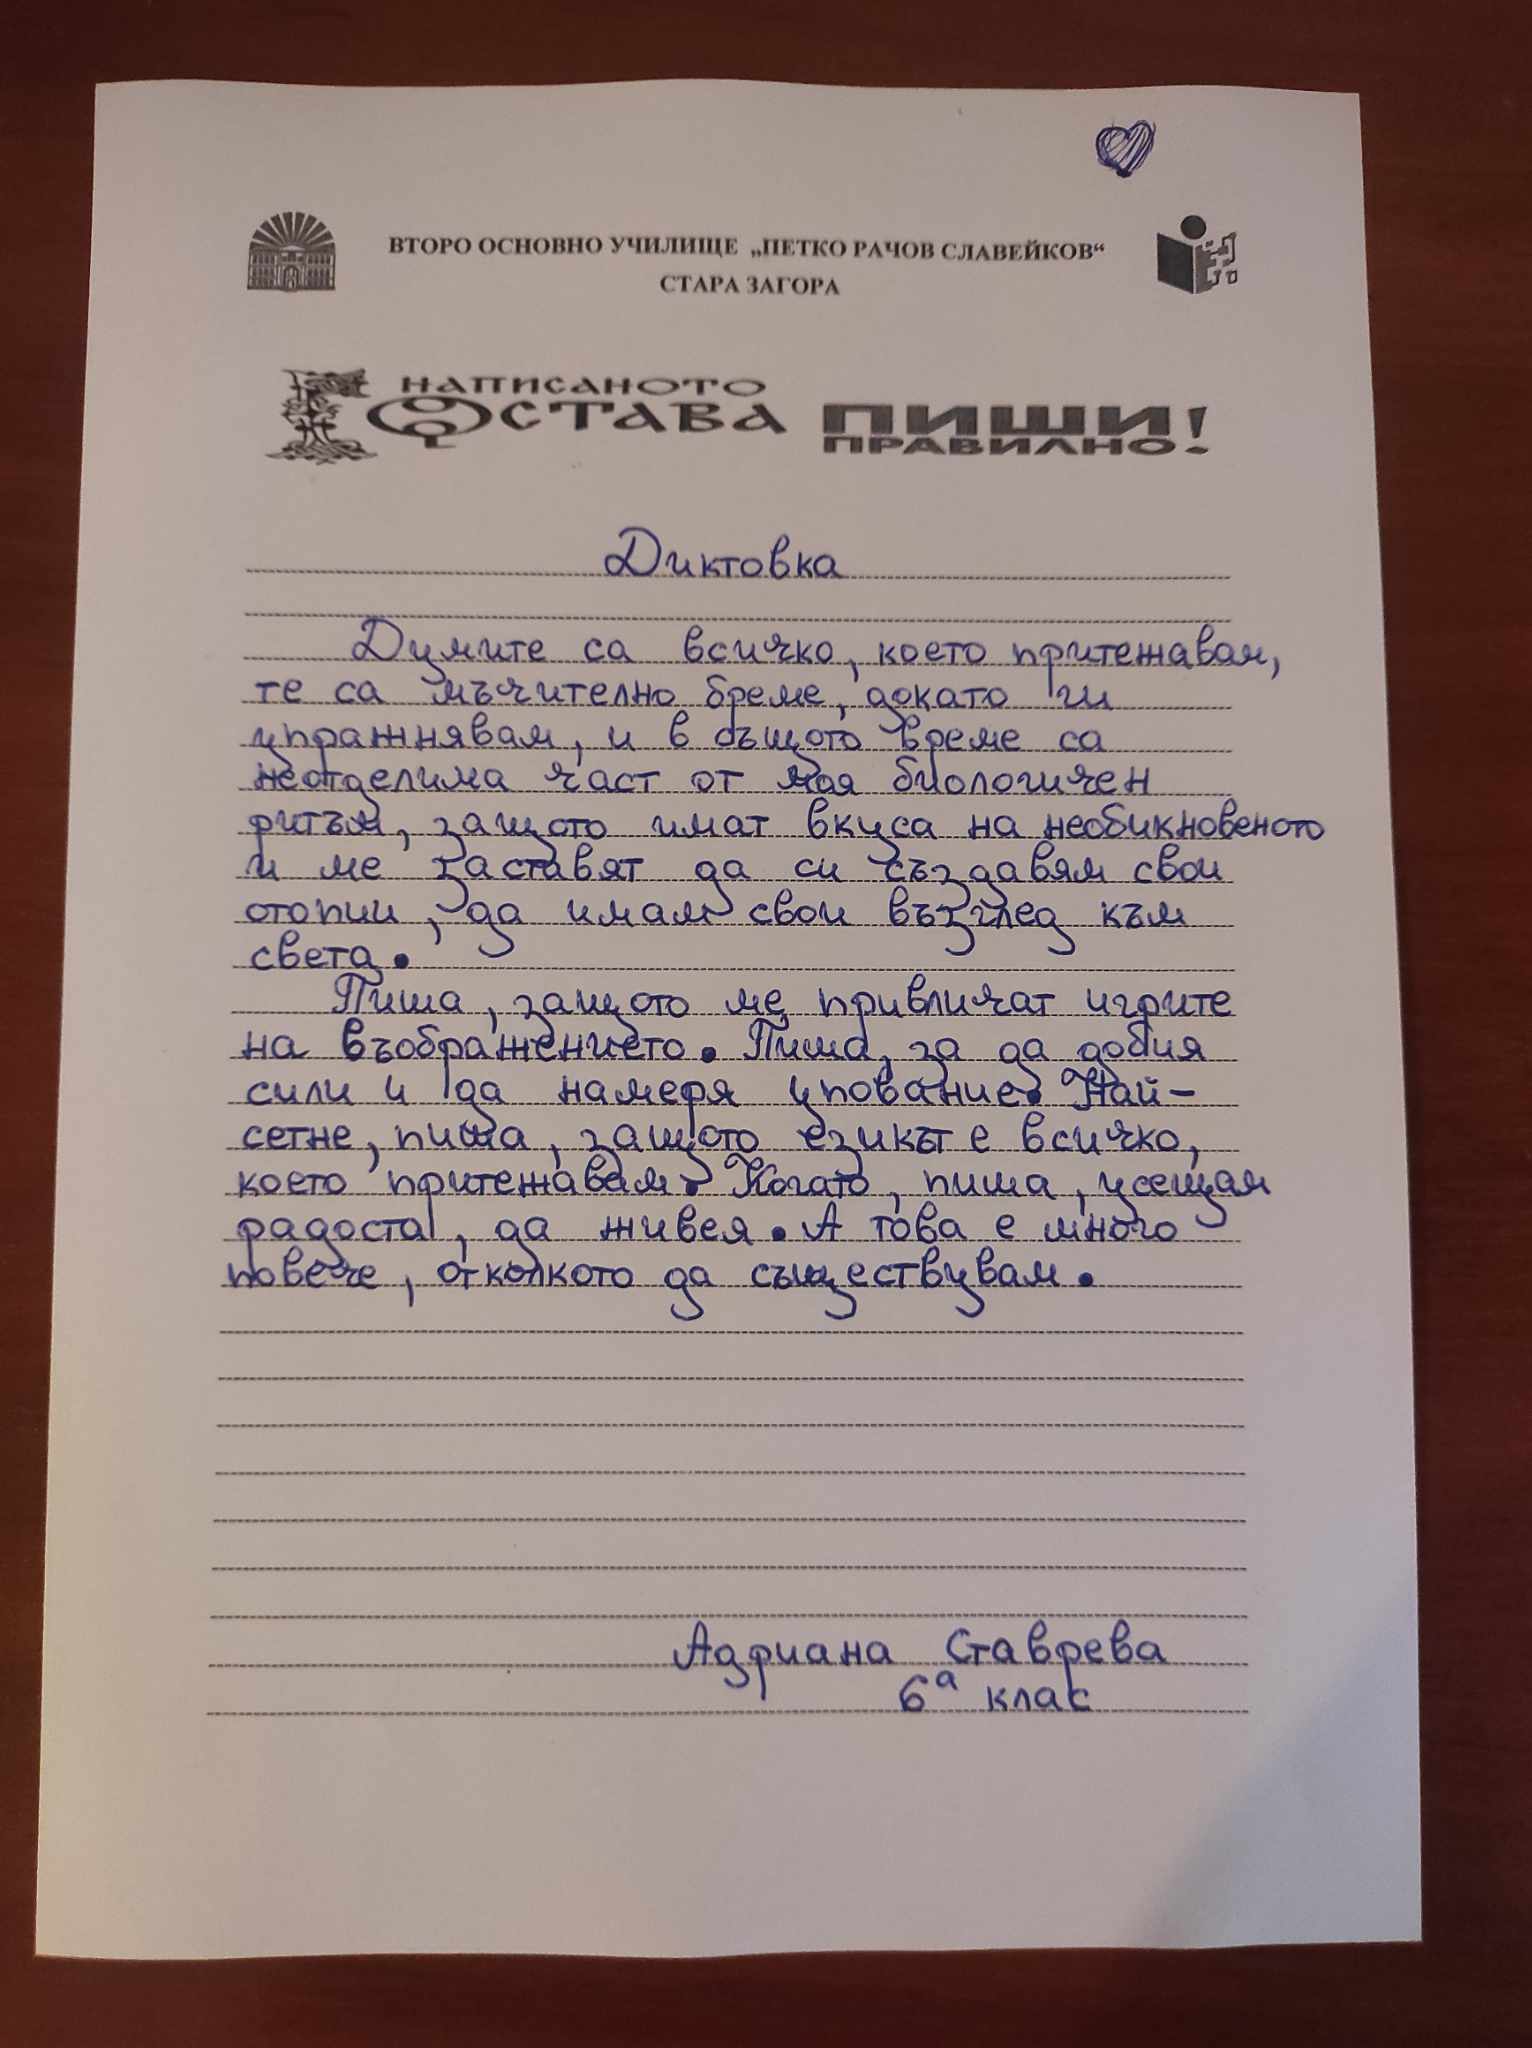 ВТОРО ОСНОВНО УЧИЛИЩЕ „ПЕТКО РАЧОВ СЛАВЕЙКОВ“
СТАРА ЗАГОРА
НАПИСАНОТО
ОСТАВА
ПИШИ
ПРАВИЛНО!
Диктовка
Думите са всичко, което притежавам,
те са мъчително бреме, докато ги
упражнявам, и в същото време са
неотделима част от моя биологичен
ритъм, защото имат вкуса на необикновеното
и ме заставят да си създавям свои
отопии, да имам свои възглед към
света.
Пиша, защото ме привличат игрите
на въображението. Пиша, за да добия
сили и да намеря упование. Най-
сетне, пиша, защото езикът е всичко,
което притежавам. Когато, пиша, усещам
радоста, да живея. А това е много
повече, отколкото да съществувам.
Адриана Ставрева
6а клас